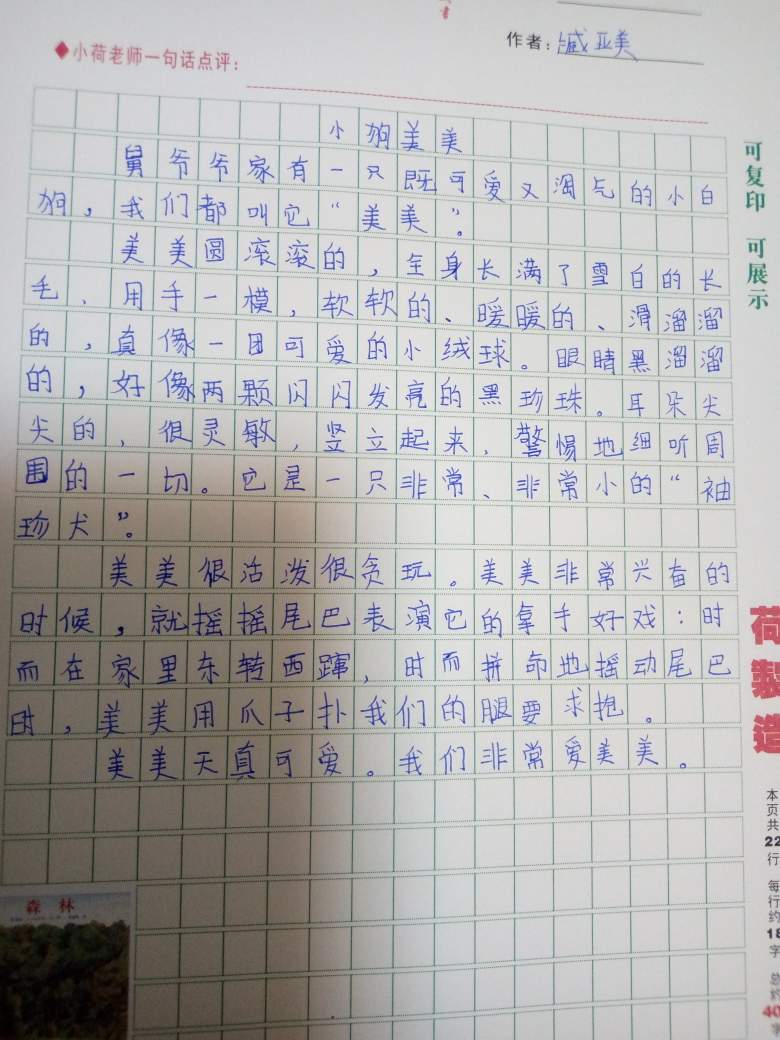 作者：臧亚美
◆小荷老师一句话点评：
小狗美美
舅爷爷家有一只既可爱又淘气的小白
狗，我们都叫它“美美”。
美美圆滚滚的，全身长满了雪白的长
毛、用手一模，软软的、暖暖的、滑溜溜
的，真像一团可爱的小绒球。眼睛黑溜溜
的，好像两颗闪闪发亮的黑珍珠。耳朵尖
尖的，很灵敏，竖立起来，警惕地细听周
围的一切。它是一只非常、非常小的“袖
珍犬”。
美美很活泼很贪玩。美美非常兴奋的
时候，就摇摇尾巴表演它的拿手好戏：时
而在家里东转西蹿，时而拼命地摇动尾巴
时，美美用爪子扑我们的腿要求抱。
美美天真可爱。我们非常爱美美。
可复印 可展示
荷製造
本页共22行 每行约18字 总约40
森林